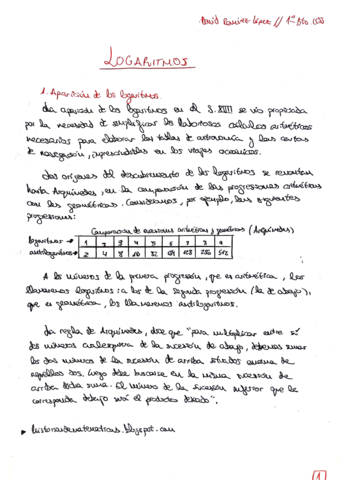 David Ramírez López // 1º Bto. CCSS
LOGARITMOS
1. Aparición de los logaritmos.
La aparición de los logaritmos en el S.XVII se vio propiciada
por la necesidad de simplificar los laboriosos cálculos aritméticos
necesarios para elaborar las tablas de astronomía y las cartas
de navegación, imprescindibles en los viajes oceánicos.
Los orígenes del descubrimiento de los logaritmos se remontan
hasta Arquímedes, en la comparación de las progresiones aritméticas
con las geométricas. Consideremos, por ejemplo, las siguientes
progresiones:
Comparación de sucesiones aritméticas y geométricas (Arquímedes)
logaritmos → 1 2 3 4 5 6 7 8 9
antilogaritmos → 2 4 8 16 32 64 128 256 512
A los números de la primera progresión, que es aritmética, los
llamaremos logaritmos; a los de la segunda progresión (la de abajo),
que es geométrica, los llamaremos antilogaritmos.
La regla de Arquímedes, dice que "para multiplicar entre sí
dos números cualesquiera de la sucesión de abajo, debemos sumar
los dos números de la sucesión de arriba situados encima de
aquellos dos, luego debe buscarse en la misma sucesión de
arriba dicha suma. El número de la sucesión inferior que le
corresponda debajo será el producto deseado".
▸ historiasdematematicas.blogspot.com
1